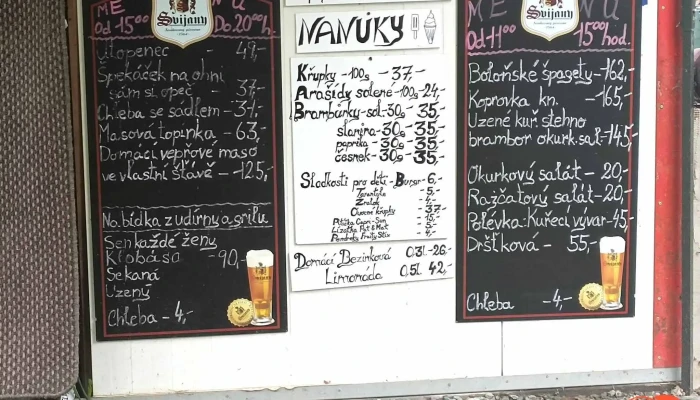 MENU
Svijany
Od 15⁰⁰ Do 20⁰⁰h.
Utopenec - 49,-
Špekáček na ohni
sám si opeč - 37,-
Chleba se sádlem - 37,-
Masová topinka - 63,-
Domácí vepřové maso
ve vlastní šťávě - 125,-
Nabídka z udírny a grilu
Sen každé ženy
Klobása - 90,-
Sekaná
Uzený
Chleba - 4,-
NANUKY
Křupky - 100g - 37,-
Arašídy solené - 100g - 24,-
Brambůrky - sol. - 30g - 35,-
slanina - 30g - 35,-
paprika - 30g - 35,-
česnek - 30g - 35,-
Sladkosti pro děti - Burger - 6,-
Tarantule - 5,-
Žralok - 4,-
Ovocné křupky - 37,-
Pitíčko Capri-Sun
Lízátko Pat & Mat - 5,-
Pendreky Fruity Stix - 4,-
Domácí Bezinková 0,3l - 26,-
Limonáda 0,5l 42,-
MENU
Svijany
Od 11⁰⁰ 15⁰⁰ hod.
Boloňské špagety - 162,-
Koprovka kn. - 165,-
Uzené kuř. stehno
brambor okurk. sal. - 145,-
Okurkový salát - 20,-
Rajčatový salát - 20,-
Polévka: Kuřecí vývar - 45,-
Dršťková - 55,-
Chleba - 4,-